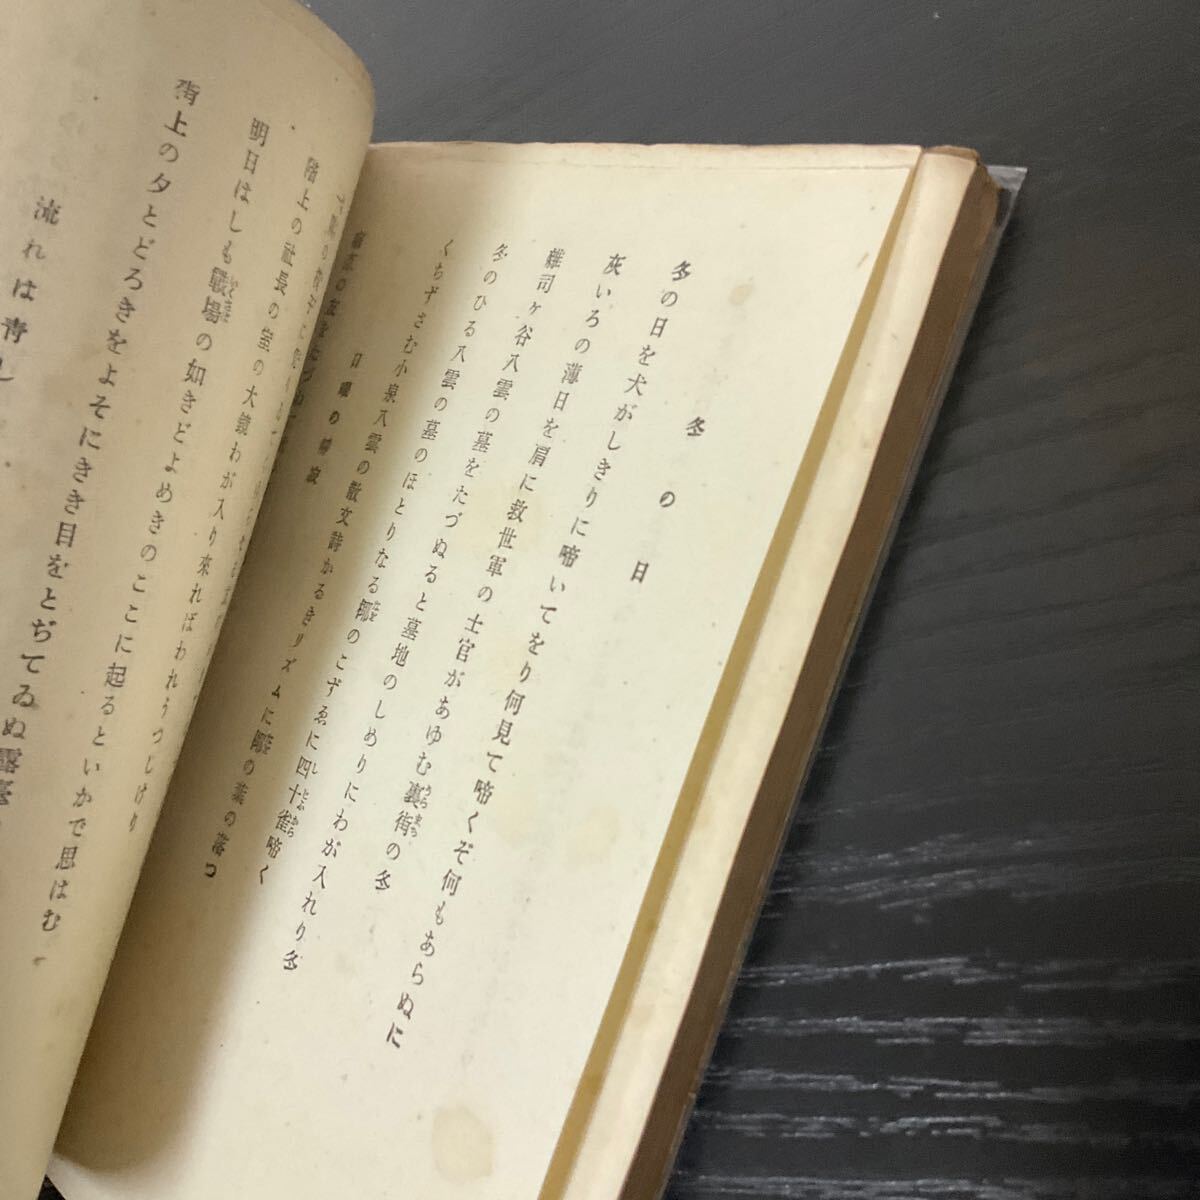 冬の日
冬の日を犬がしきりに啼いてをり何見て啼くぞ何もあらぬに
灰いろの薄日を肩に救世軍の士官があゆむ裏街の冬
雜司ヶ谷八雲の墓をたづぬると墓地のしめりにわが入れり冬
冬のひる八雲の墓のほとりなる のこずゑに四十雀啼く
くちずさむ小泉八雲の散文詩かるきリズムに の葉の落つ
日曜の靜寂
階上の社長の室の大鏡わが入り來ればわれうつしけり
明日はしも戰場の如きどよめきのここに起るといかで思はむ
街上の夕とどろきをよそにきき目をとぢてゐぬ露臺
流れは靑し